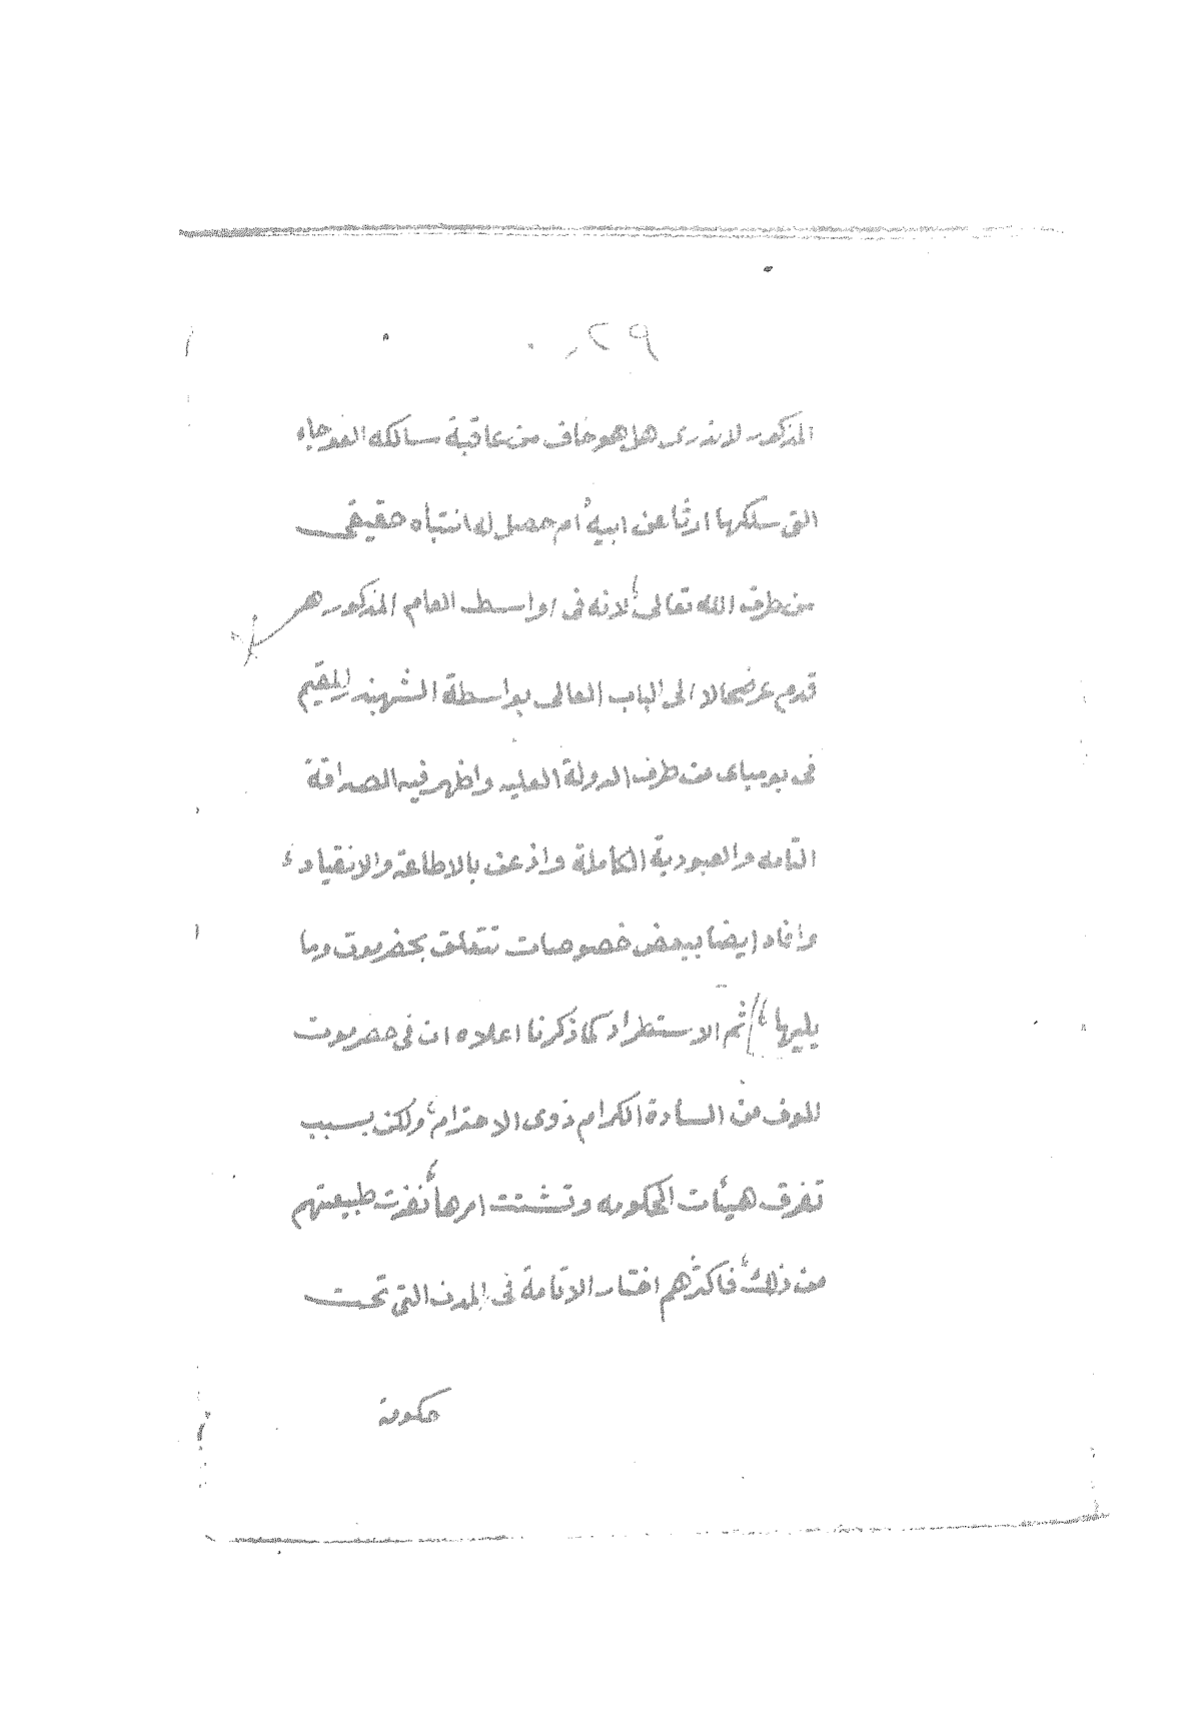 ٢٩
المذكور لا ندرى هل هو خاف من عاقبة سالكه العوجاء
التى سلكها ارثا عن ابيه أم حصل له انتباه حقيقى
من طرف الله تعالى لانه فى اواسط العام المذكور هـ
قدم عرضحالا الى الباب العالى بواسطة الشهبندر المقيم
فى بومباى من طرف الدولة العليه واظهر فيه الصداقة
التامه والعبودية الكاملة واذعن بالاطاعة والانقياد
وافاد ايضا ببعض خصوصات تتعلق بحضرموت وما
يليها ثم الاستطراد كما ذكرنا اعلاه ان فى حضرموت
الوف من السادة الكرام ذوى الاحترام ولكن بسبب
تفرق هيئات الحكومه وتشتت امرها نفرت طبيعتهم
من ذلك فاكثرهم اختار الاقامة فى المدن التى تحت
حكومة